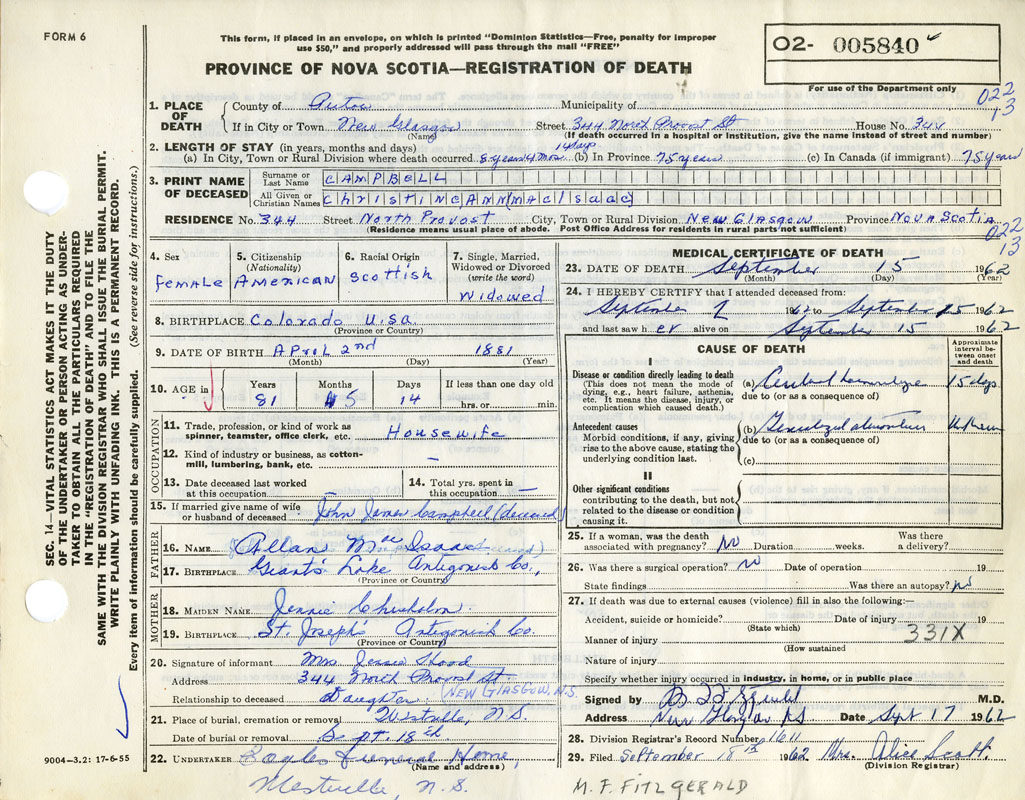 FORM 6
This form, if placed in an envelope, on which is printed "Dominion Statistics—Free, penalty for improper
use $50," and properly addressed will pass through the mail "FREE"
PROVINCE OF NOVA SCOTIA—REGISTRATION OF DEATH
O2- 005840
For use of the Department only
022
13
1. PLACE OF DEATH County of Pictou Municipality of
If in City or Town New Glasgow Street 344 North Provost St House No. 344
(Name) (If death occurred in a hospital or institution, give the name instead of street number)
2. LENGTH OF STAY (in years, months and days) 14 days
(a) In City, Town or Rural Division where death occurred 8 years 4 mos. (b) In Province 75 years (c) In Canada (if immigrant) 75 years
3. PRINT NAME OF DECEASED Surname or Last Name CAMPBELL
All Given or Christian Names Christine Ann (MacIsaac)
RESIDENCE No. 344 Street North Provost City, Town or Rural Division New Glasgow Province Nova Scotia
(Residence means usual place of abode. Post Office Address for residents in rural parts not sufficient)
022
13
4. Sex Female
5. Citizenship (Nationality) American
6. Racial Origin Scottish
7. Single, Married, Widowed or Divorced (write the word) Widowed
8. BIRTHPLACE Colorado U.S.A.
(Province or Country)
9. DATE OF BIRTH April 2nd 1881
(Month) (Day) (Year)
10. AGE in Years 81 Months 5 Days 14 If less than one day old hrs. or min.
OCCUPATION
11. Trade, profession, or kind of work as spinner, teamster, office clerk, etc. Housewife
12. Kind of industry or business, as cotton-mill, lumbering, bank, etc. —
13. Date deceased last worked at this occupation
14. Total yrs. spent in this occupation —
15. If married give name of wife or husband of deceased John James Campbell (deceased)
FATHER
16. NAME Allan MacIsaac
17. BIRTHPLACE Giant's Lake Antigonish Co.,
(Province or Country)
MOTHER
18. MAIDEN NAME Jennie Chisholm
19. BIRTHPLACE St. Joseph's Antigonish Co.
(Province or Country)
20. Signature of informant Mrs. Jessie Hood
Address 344 North Provost St.
NEW GLASGOW, N.S.
Relationship to deceased Daughter
21. Place of burial, cremation or removal Westville, N.S.
Date of burial or removal Sept. 18th
22. UNDERTAKER Funeral Home,
(Name and address)
Westville, N.S.
MEDICAL CERTIFICATE OF DEATH
23. DATE OF DEATH September 15 1962
(Month) (Day) (Year)
24. I HEREBY CERTIFY that I attended deceased from:
September 1962 to September 15 1962
and last saw her alive on September 15 1962
CAUSE OF DEATH
Approximate interval between onset and death
I
Disease or condition directly leading to death
(This does not mean the mode of dying, e.g., heart failure, asthenia, etc. It means the disease, injury, or complication which caused death.)
(a) Cerebral hemorrhage 15 days
due to (or as a consequence of)
Antecedent causes
Morbid conditions, if any, giving rise to the above cause, stating the underlying condition last.
(b) Generalized
due to (or as a consequence of)
(c)
II
Other significant conditions
contributing to the death, but not related to the disease or condition causing it.
25. If a woman, was the death associated with pregnancy? No Duration weeks. Was there a delivery?
26. Was there a surgical operation? No Date of operation 19
State findings Was there an autopsy? No
27. If death was due to external causes (violence) fill in also the following:—
Accident, suicide or homicide? Date of injury 19
(State which)
331X
Manner of injury
(How sustained
Nature of injury
Specify whether injury occurred in industry, in home, or in public place
Signed by M.D.
Address New Glasgow NS Date Sept 17 1962
28. Division Registrar's Record Number 1611
29. Filed September 18th 1962 Mrs. Alice Scott.
(Division Registrar)
M. F. FITZGERALD
SEC. 14—VITAL STATISTICS ACT MAKES IT THE DUTY
OF THE UNDERTAKER OR PERSON ACTING AS UNDER-
TAKER TO OBTAIN ALL THE PARTICULARS REQUIRED
IN THE "REGISTRATION OF DEATH" AND TO FILE THE
SAME WITH THE DIVISION REGISTRAR WHO SHALL ISSUE THE BURIAL PERMIT.
WRITE PLAINLY WITH UNFADING INK. THIS IS A PERMANENT RECORD.
Every item of information should be carefully supplied. (See reverse side for instructions.)
9004—3.2: 17-6-55